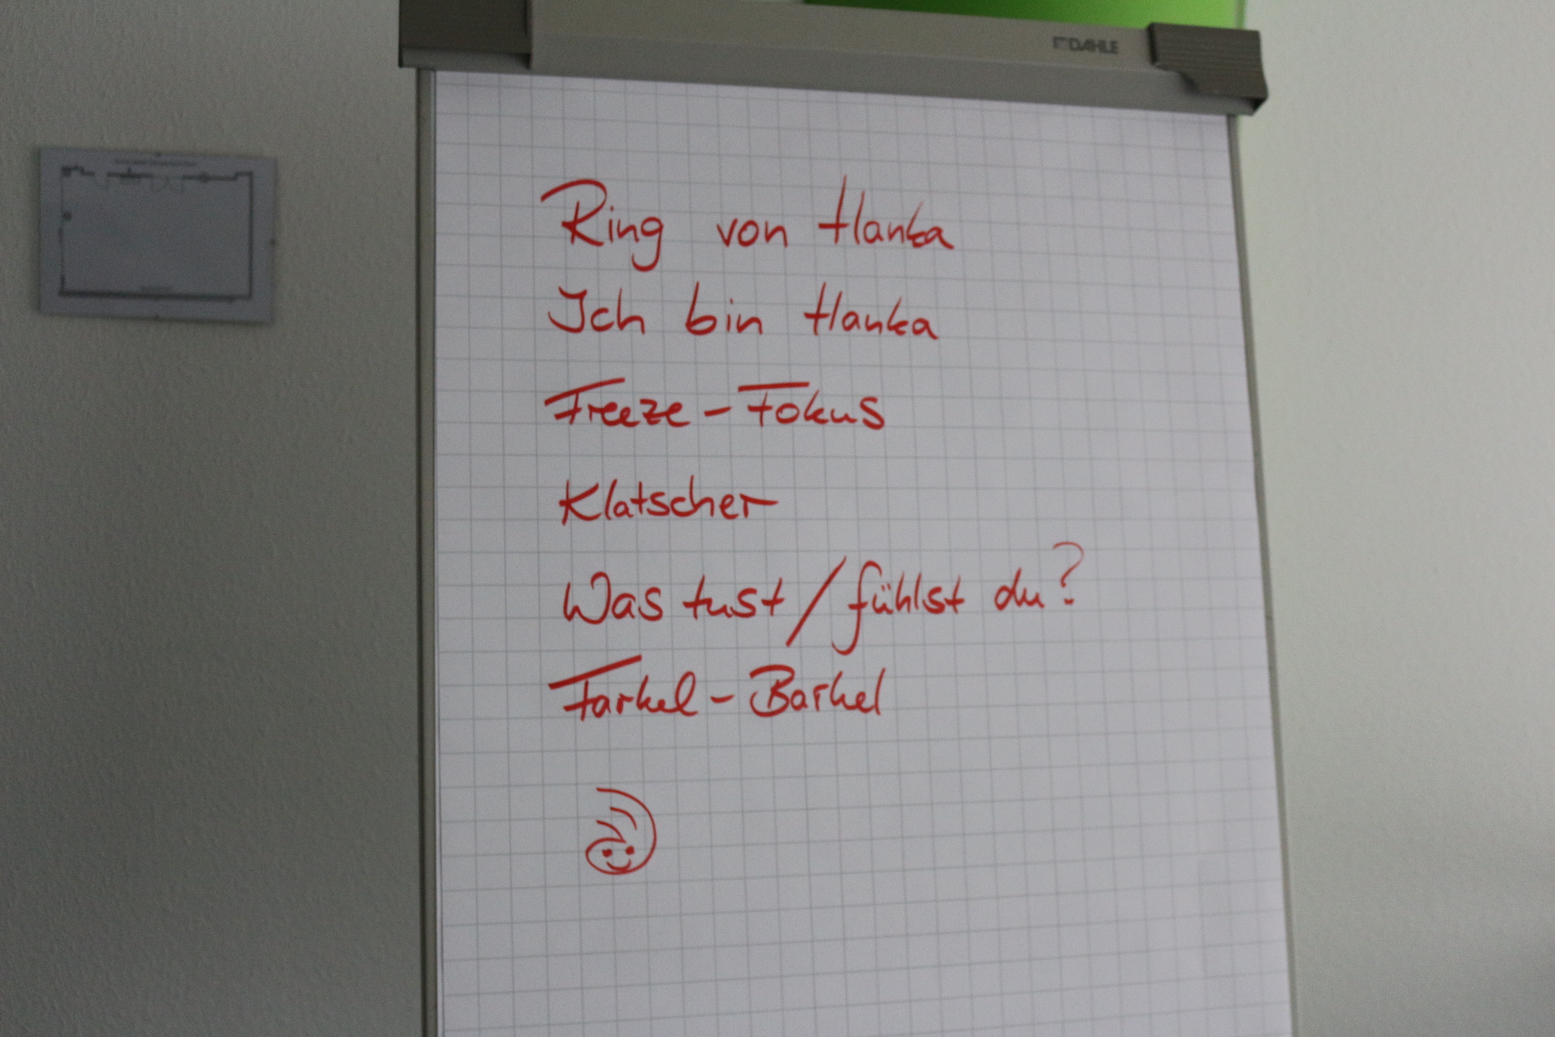 DAHLE
Ring von Hanka
Ich bin Hanka
Freeze - Fokus
Klatscher
Was tust / fühlst du?
Farkel - Barkel